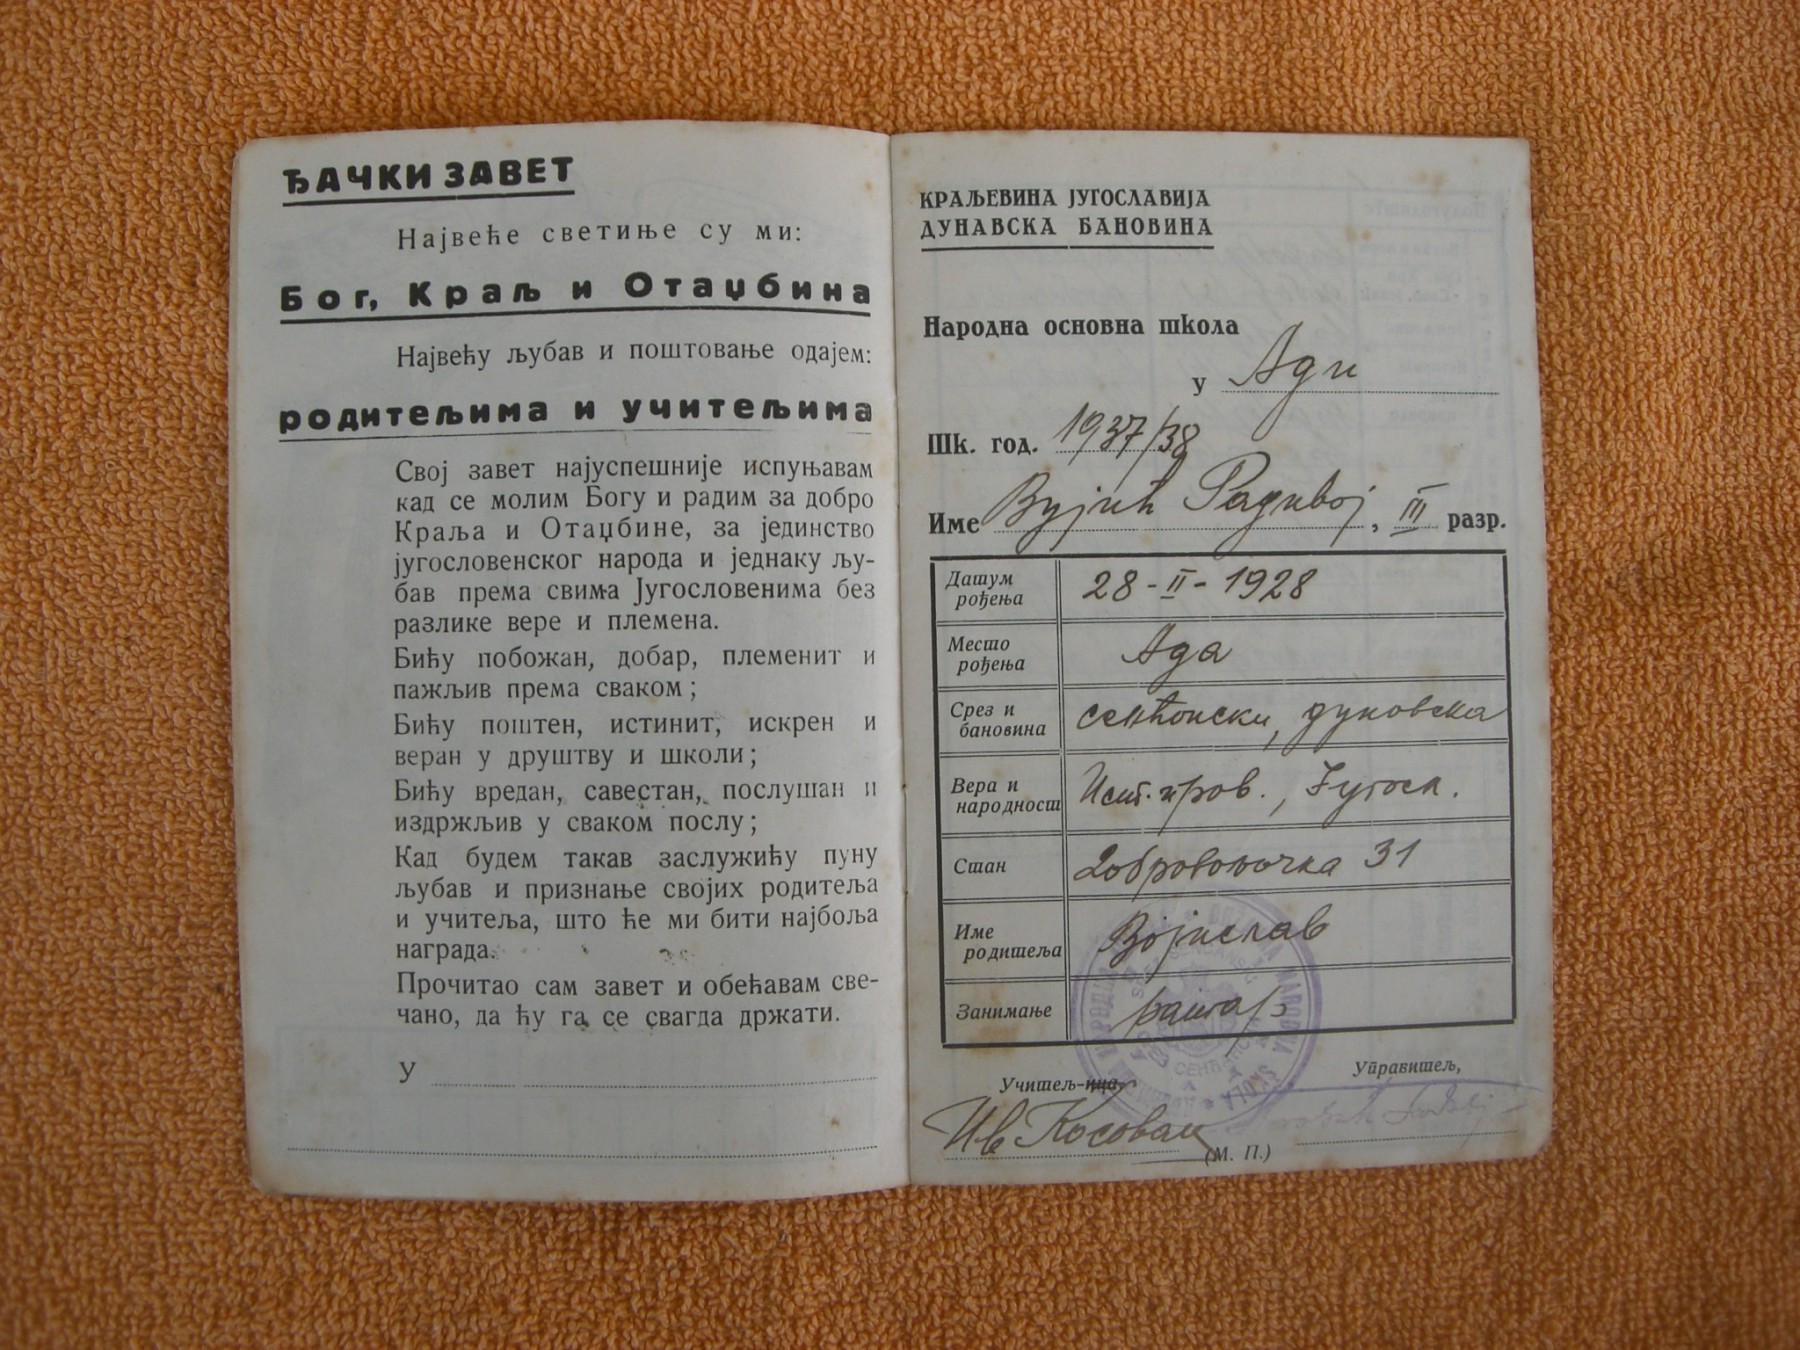 ЂАЧКИ ЗАВЕТ
Највеће светиње су ми:
Бог, Краљ и Отаџбина
Највећу љубав и поштовање одајем:
родитељима и учитељима
Свој завет најуспешније испуњавам
кад се молим Богу и радим за добро
Краља и Отаџбине, за јединство
југословенског народа и једнаку љу-
бав према свима Југословенима без
разлике вере и племена.
Бићу побожан, добар, племенит и
пажљив према сваком;
Бићу поштен, истинит, искрен и
веран у друштву и школи;
Бићу вредан, савестан, послушан и
издржљив у сваком послу;
Кад будем такав заслужићу пуну
љубав и признање својих родитеља
и учитеља, што ће ми бити најбоља
награда.
Прочитао сам завет и обећавам све-
чано, да ћу га се свагда држати.
У
КРАЉЕВИНА ЈУГОСЛАВИЈА
ДУНАВСКА БАНОВИНА
Народна основна школа
у Ади
Шк. год. 1937/38
Име Вујић Радивој, III разр.
Датум рођења 28-II-1928
Место рођења Ада
Срез и бановина сенћански, дунавска
Вера и народност Ист. прав., Југосл.
Стан Добровољачка 31
Име родитеља Војислав
Занимање ратар
Учитељ-ица,
Управитељ,
Ив Косовац
(М. П.)